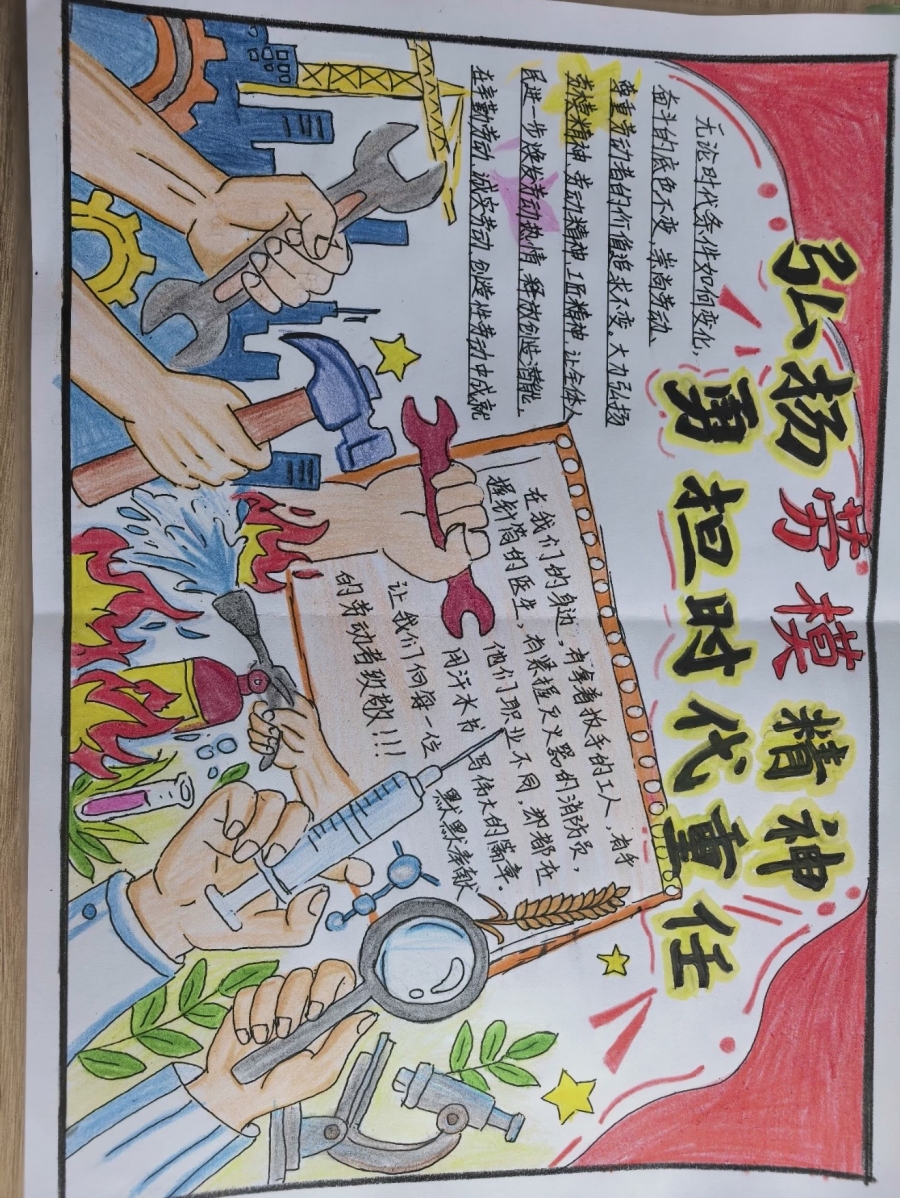 弘扬劳模精神
勇担时代重任
无论时代条件如何变化,
奋斗的底色不变,崇尚劳动、
尊重劳动者的价值追求不变,大力弘扬
劳模精神、劳动精神、工匠精神,让全体人
民进一步焕发劳动热情、释放创造潜能,
在辛勤劳动、诚实劳动、创造性劳动中成就
在我们的身边,有拿着扳手的工人,有手
握针筒的医生,有紧握灭火器的消防员,
他们职业不同,却都在
默默奉献
用汗水书写伟大的篇章。
让我们向每一位
的劳动者致敬!!!